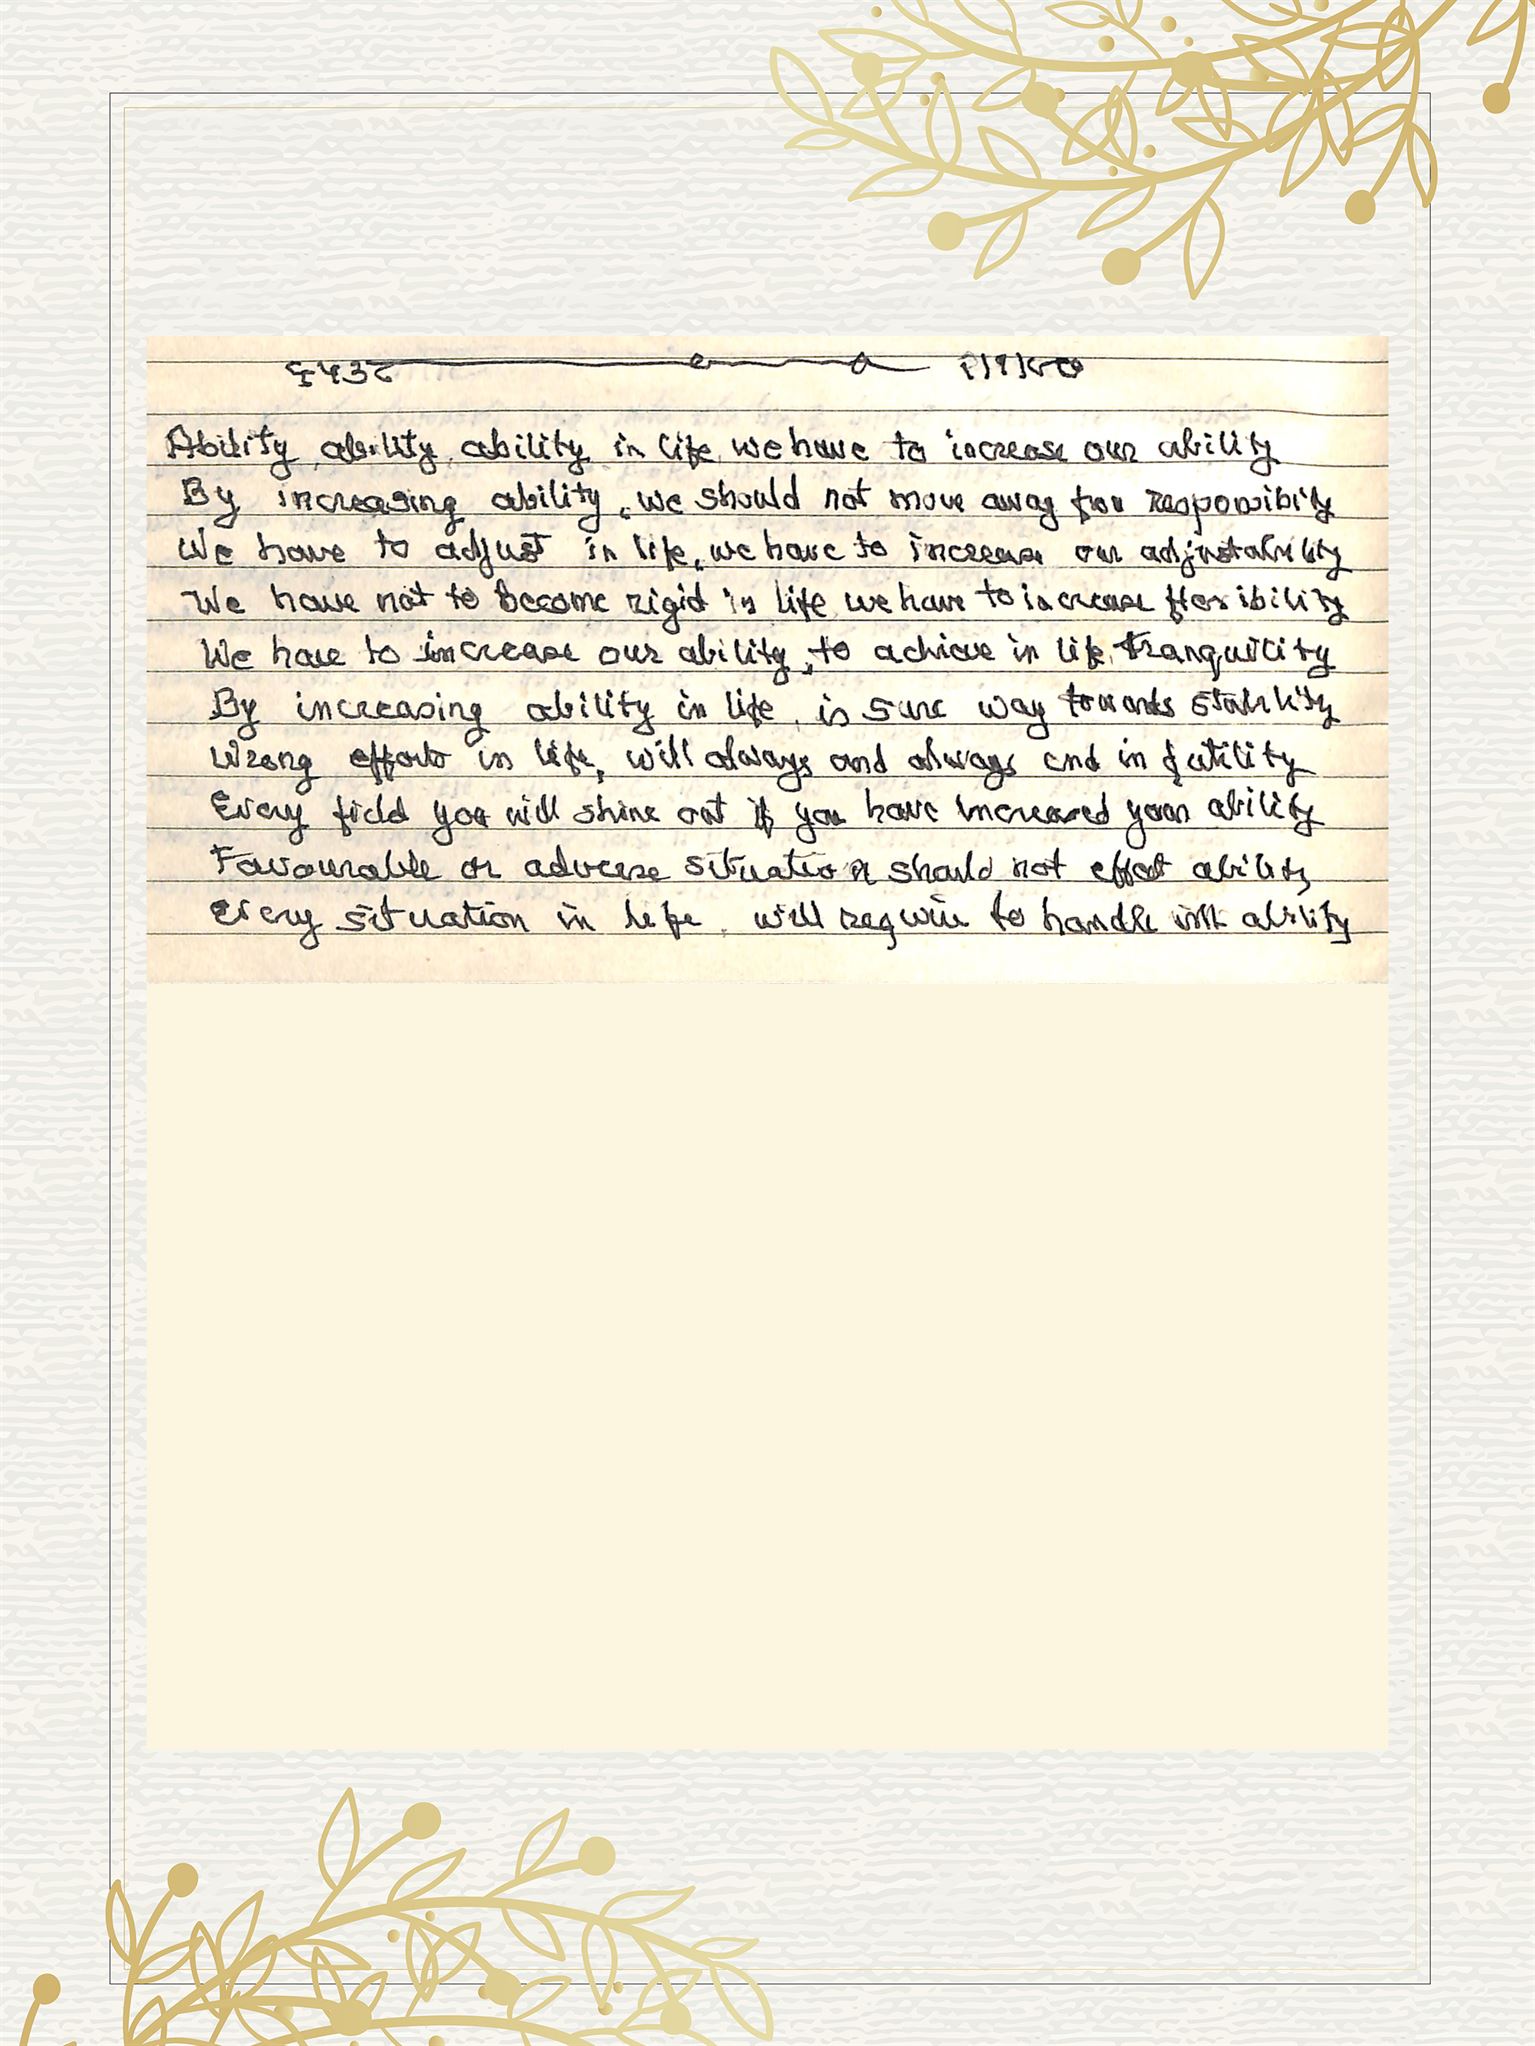 Ability, ability, ability in life, we have to increase our ability
By increasing ability, we should not move away from responsibity
We have to adjust in life, we have to increase our adjustability
We have not to become rigid in life we have to increase flexibility
We have to increase our ability, to achieve in life, tranquility
By increasing ability in life, is sure way towards stability
Wrong efforts in life, will always and always end in futility
Every field you will shine out if you have increased your ability
Favourable or adverse situation should not effect ability
Every situation in life, will require to handle with ability